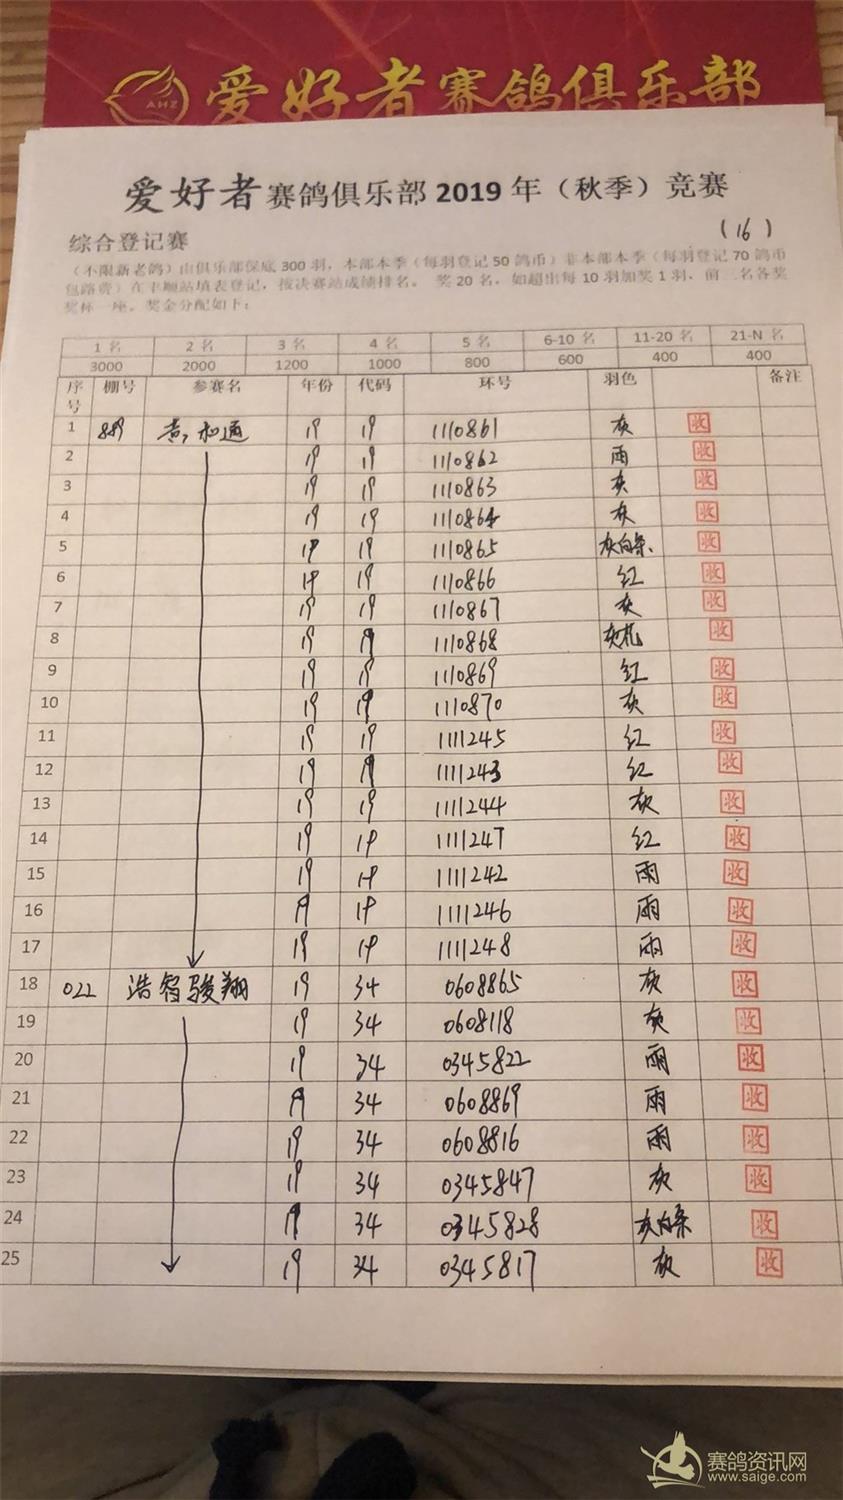 AHZ 爱好者赛鸽俱乐部
爱好者赛鸽俱乐部 2019 年（秋季）竞赛
(16)
综合登记赛
（不限新老鸽）由俱乐部保底 300 羽，本部本季（每羽登记 50 鸽币）非本部本季（每羽登记 70 鸽币
包路费）在丰顺站填表登记，按决赛站成绩排名。 奖 20 名，如超出每 10 羽加奖 1 羽，前三名各奖
奖杯一座。奖金分配如下：
1 名 2 名 3 名 4 名 5 名 6-10 名 11-20 名 21-N 名
3000 2000 1200 1000 800 600 400 400
序号 棚号 参赛名 年份 代码 环号 羽色 备注
1 889 19 19 1110861 灰 收
2 19 19 1110862 雨 收
3 19 19 1110863 灰 收
4 19 19 1110864 灰 收
5 19 19 1110865 灰白条 收
6 19 19 1110866 红 收
7 19 19 1110867 灰 收
8 19 19 1110868 灰花 收
9 19 19 1110869 红 收
10 19 19 1110870 灰 收
11 19 19 1111245 红 收
12 19 19 1111243 红 收
13 19 19 1111244 灰 收
14 19 19 1111247 红 收
15 19 19 1111242 雨 收
16 19 19 1111246 雨 收
17 19 19 1111248 雨 收
18 022 浩智骏翔 19 34 0608865 灰 收
19 19 34 0608118 灰 收
20 19 34 0345822 雨 收
21 19 34 0608869 雨 收
22 19 34 0608816 雨 收
23 19 34 0345847 灰 收
24 19 34 0345828 灰白条 收
25 19 34 0345817 灰 收
赛鸽资讯网
www.saige.com